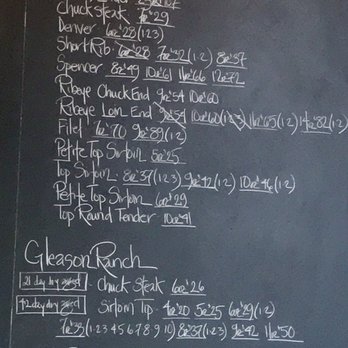 Chuck Steak 7oz $29
Denver 6oz $28 (1·2·3)
Short Rib: 6oz $28 7oz $32 (1·2) 8oz $37
Spencer 8oz $49 10oz $61 11oz $66 12oz $72
Ribeye Chuck End 9oz $54 10oz $60
Ribeye Loin End 9oz $54 10oz $60 (1·2·3) 11oz $65 (1·2) 14oz $82 (1·2)
Filet 7oz $70 9oz $89 (1·2)
Petite Top Sirloin 5oz $25
Top Sirloin 8oz $37 (1·2·3) 9oz $42 (1·2) 10oz $46 (1·2)
Petite Top Sirloin 6oz $29
Top Round Tender 10oz $41
Gleason Ranch
21 day dry aged - Chuck Steak 6oz $26
42 day dry aged - Sirloin Tip 4oz $20 5oz $25 6oz $29 (1·2)
7oz $33 (1·2·3 4 5 6 7 8 9 10) 8oz $37 (1·2·3) 9oz $42 11oz $50